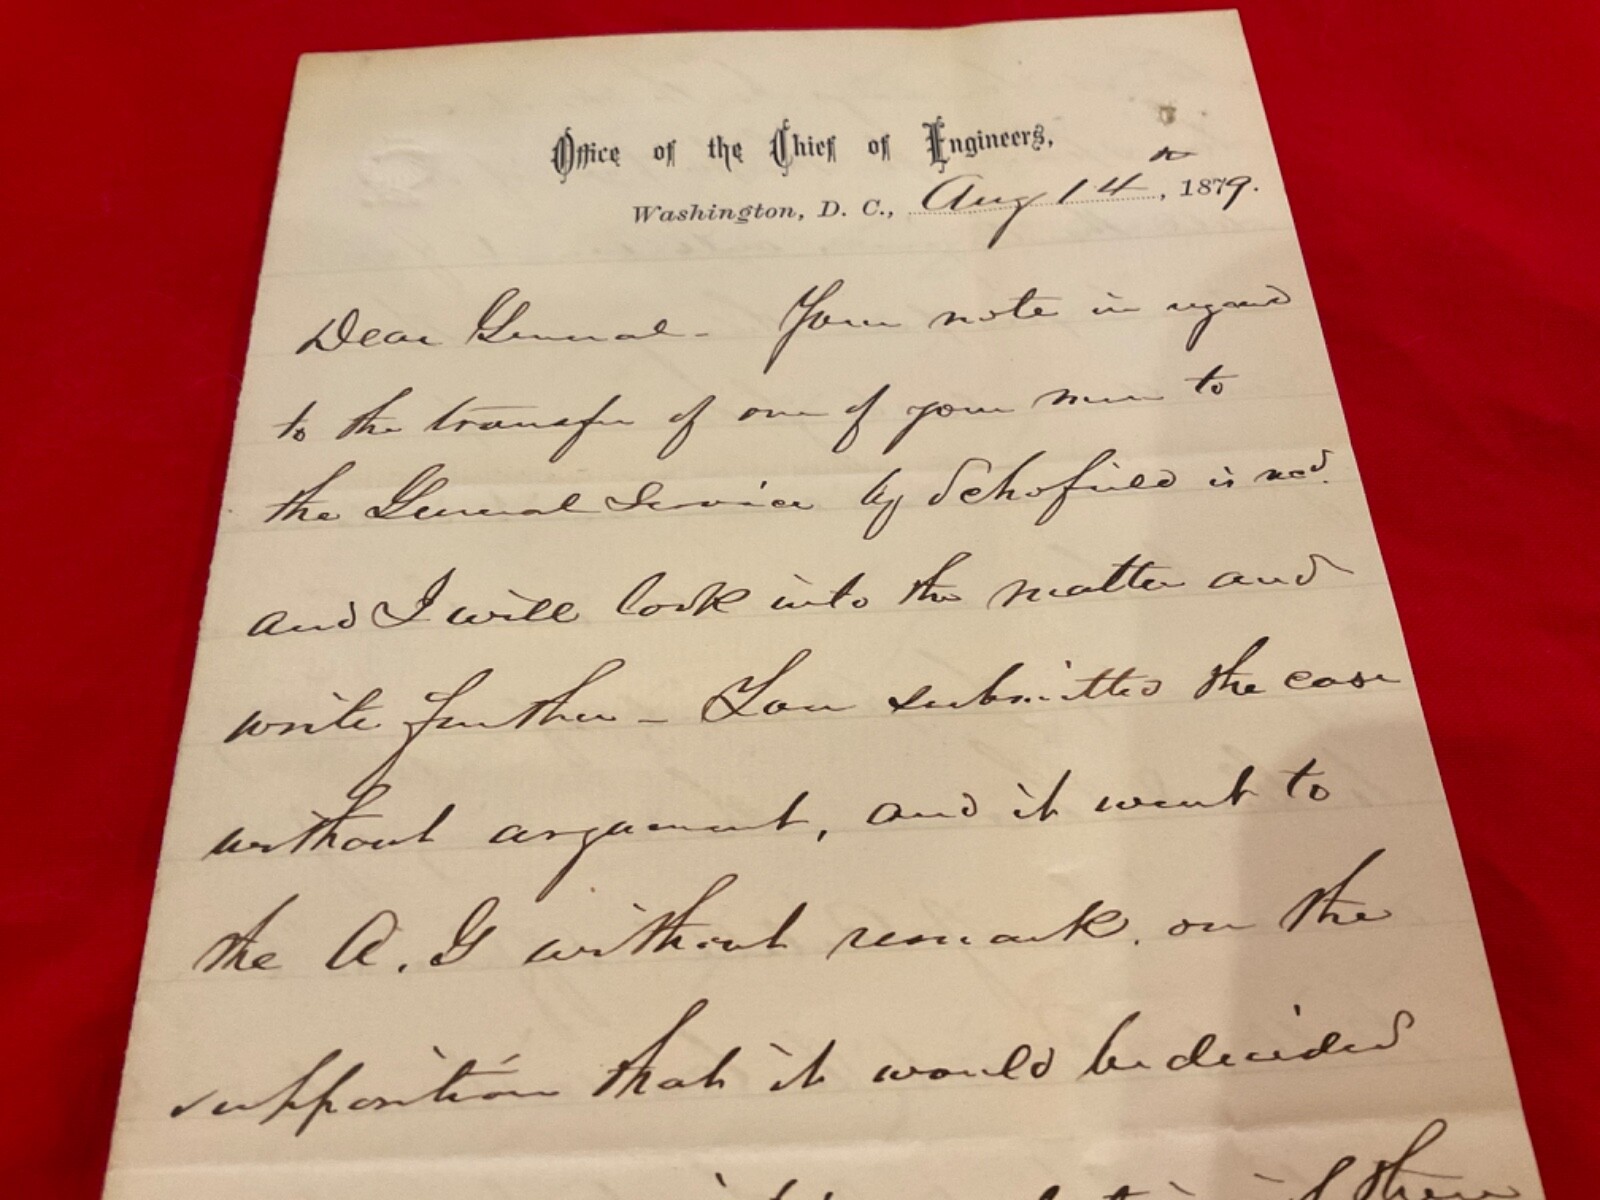 Office of the Chief of Engineers,
Washington, D. C., Aug 14th, 1879.
Dear General - Your note in regard
to the transfer of one of your men to
the General Service by Schofield is recd.
and I will look into the matter and
write further - You submitted the case
without argument, and it went to
the A. G without remark, on the
supposition that it would be decided